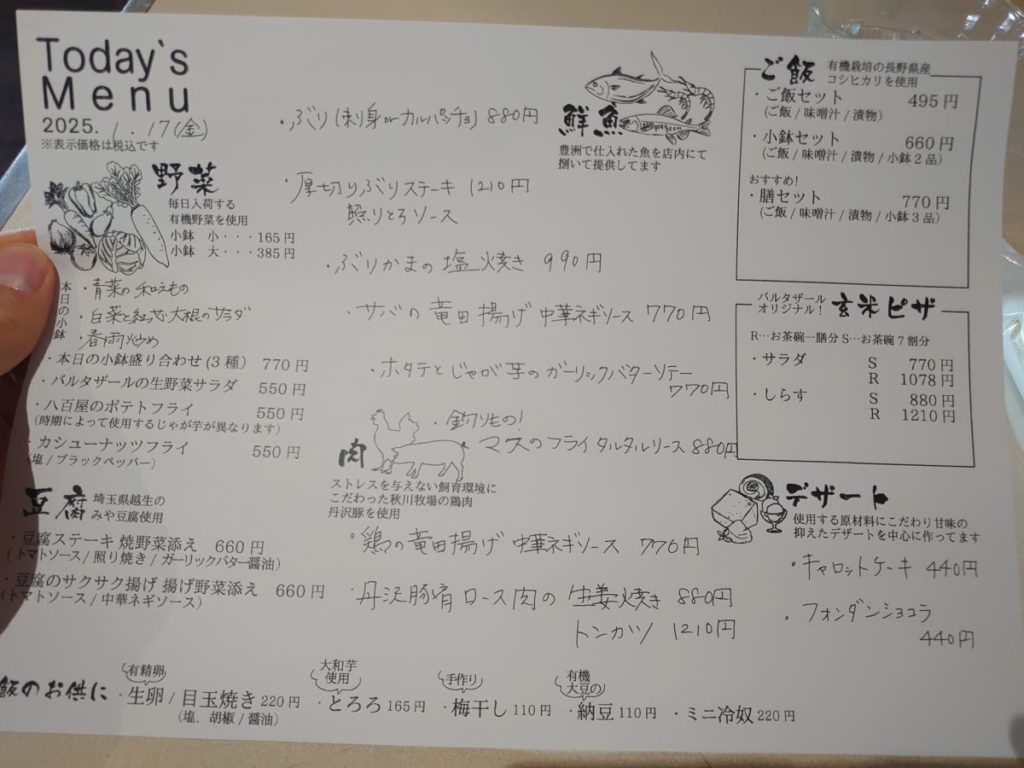 Today's
Menu
2025. 1.17(金)
※表示価格は税込です
野菜
毎日入荷する
有機野菜を使用
小鉢 小・・・165円
小鉢 大・・・385円
本日の小鉢
・青菜の和えもの
・白菜と紅芯大根のサラダ
・春雨炒め
・本日の小鉢盛り合わせ(3種) 770円
・バルタザールの生野菜サラダ 550円
・八百屋のポテトフライ 550円
(時期によって使用するじゃが芋が異なります)
・カシューナッツフライ 550円
(塩/ブラックペッパー)
豆腐
埼玉県越生の
みや豆腐使用
・豆腐ステーキ 焼野菜添え 660円
(トマトソース/照り焼き/ガーリックバター醤油)
・豆腐のサクサク揚げ 揚げ野菜添え 660円
(トマトソース/中華ネギソース)
・ぶり(刺身orカルパッチョ) 880円
・厚切りぶりステーキ 1210円
照りとろソース
・ぶりかまの塩焼き 990円
・サバの竜田揚げ 中華ネギソース 770円
・ホタテとじゃが芋のガーリックバターソテー
770円
・釣りもの!
マスのフライタルタルソース 880円
鮮魚
豊洲で仕入れた魚を店内にて
捌いて提供してます
肉
ストレスを与えない飼育環境に
こだわった秋川牧場の鶏肉
丹沢豚を使用
・鶏の竜田揚げ 中華ネギソース 770円
・丹沢豚肩ロース肉の 生姜焼き 880円
トンカツ 1210円
ご飯
有機栽培の長野県産
コシヒカリを使用
・ご飯セット 495円
(ご飯/味噌汁/漬物)
・小鉢セット 660円
(ご飯/味噌汁/漬物/小鉢2品)
おすすめ!
・膳セット 770円
(ご飯/味噌汁/漬物/小鉢3品)
バルタザール
オリジナル!
玄米ピザ
R…お茶碗一膳分 S…お茶碗7割分
・サラダ S 770円
R 1078円
・しらす S 880円
R 1210円
デザート
使用する原材料にこだわり甘味の
抑えたデザートを中心に作ってます
・キャロットケーキ 440円
・フォンダンショコラ
440円
飯のお供に
有精卵
・生卵/目玉焼き 220円
(塩、胡椒/醤油)
大和芋
使用
・とろろ 165円
手作り
・梅干し 110円
有機
大豆の
・納豆 110円
・ミニ冷奴 220円